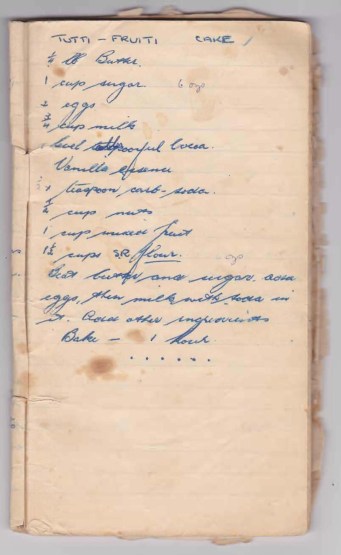 TUTTI - FRUITI CAKE
½ lb Butter.
1 cup sugar. 6 ozs
2 eggs
¾ cup milk
level spoonful cocoa.
Vanilla essence
1 teaspoon carb-soda.
½ cup nuts
1 cup mixed fruit
1½ cups SR flour.
Beat butter and sugar, add
eggs, then milk with soda in
it. Add other ingredients
Bake - 1 hour